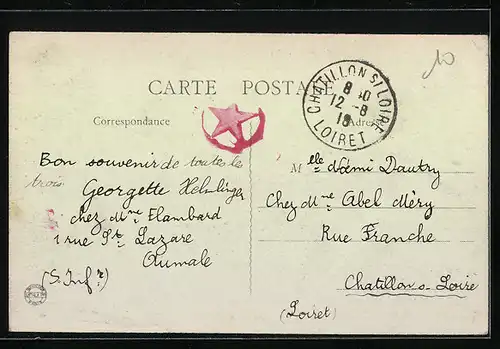 10
CARTE POSTALE
CHATILLON S/ LOIRE
8 30
12 - 8
18
LOIRET
Correspondance
Adresse
Bon souvenir de toutes les
trois
Georgette
chez Mme Flambard
1 rue St. Lazare
Aumale
(S. Infre)
Melle Noémi Dautry
Chez Mme Abel Méry
Rue Franche
Chatillon s. Loire
(Loiret)